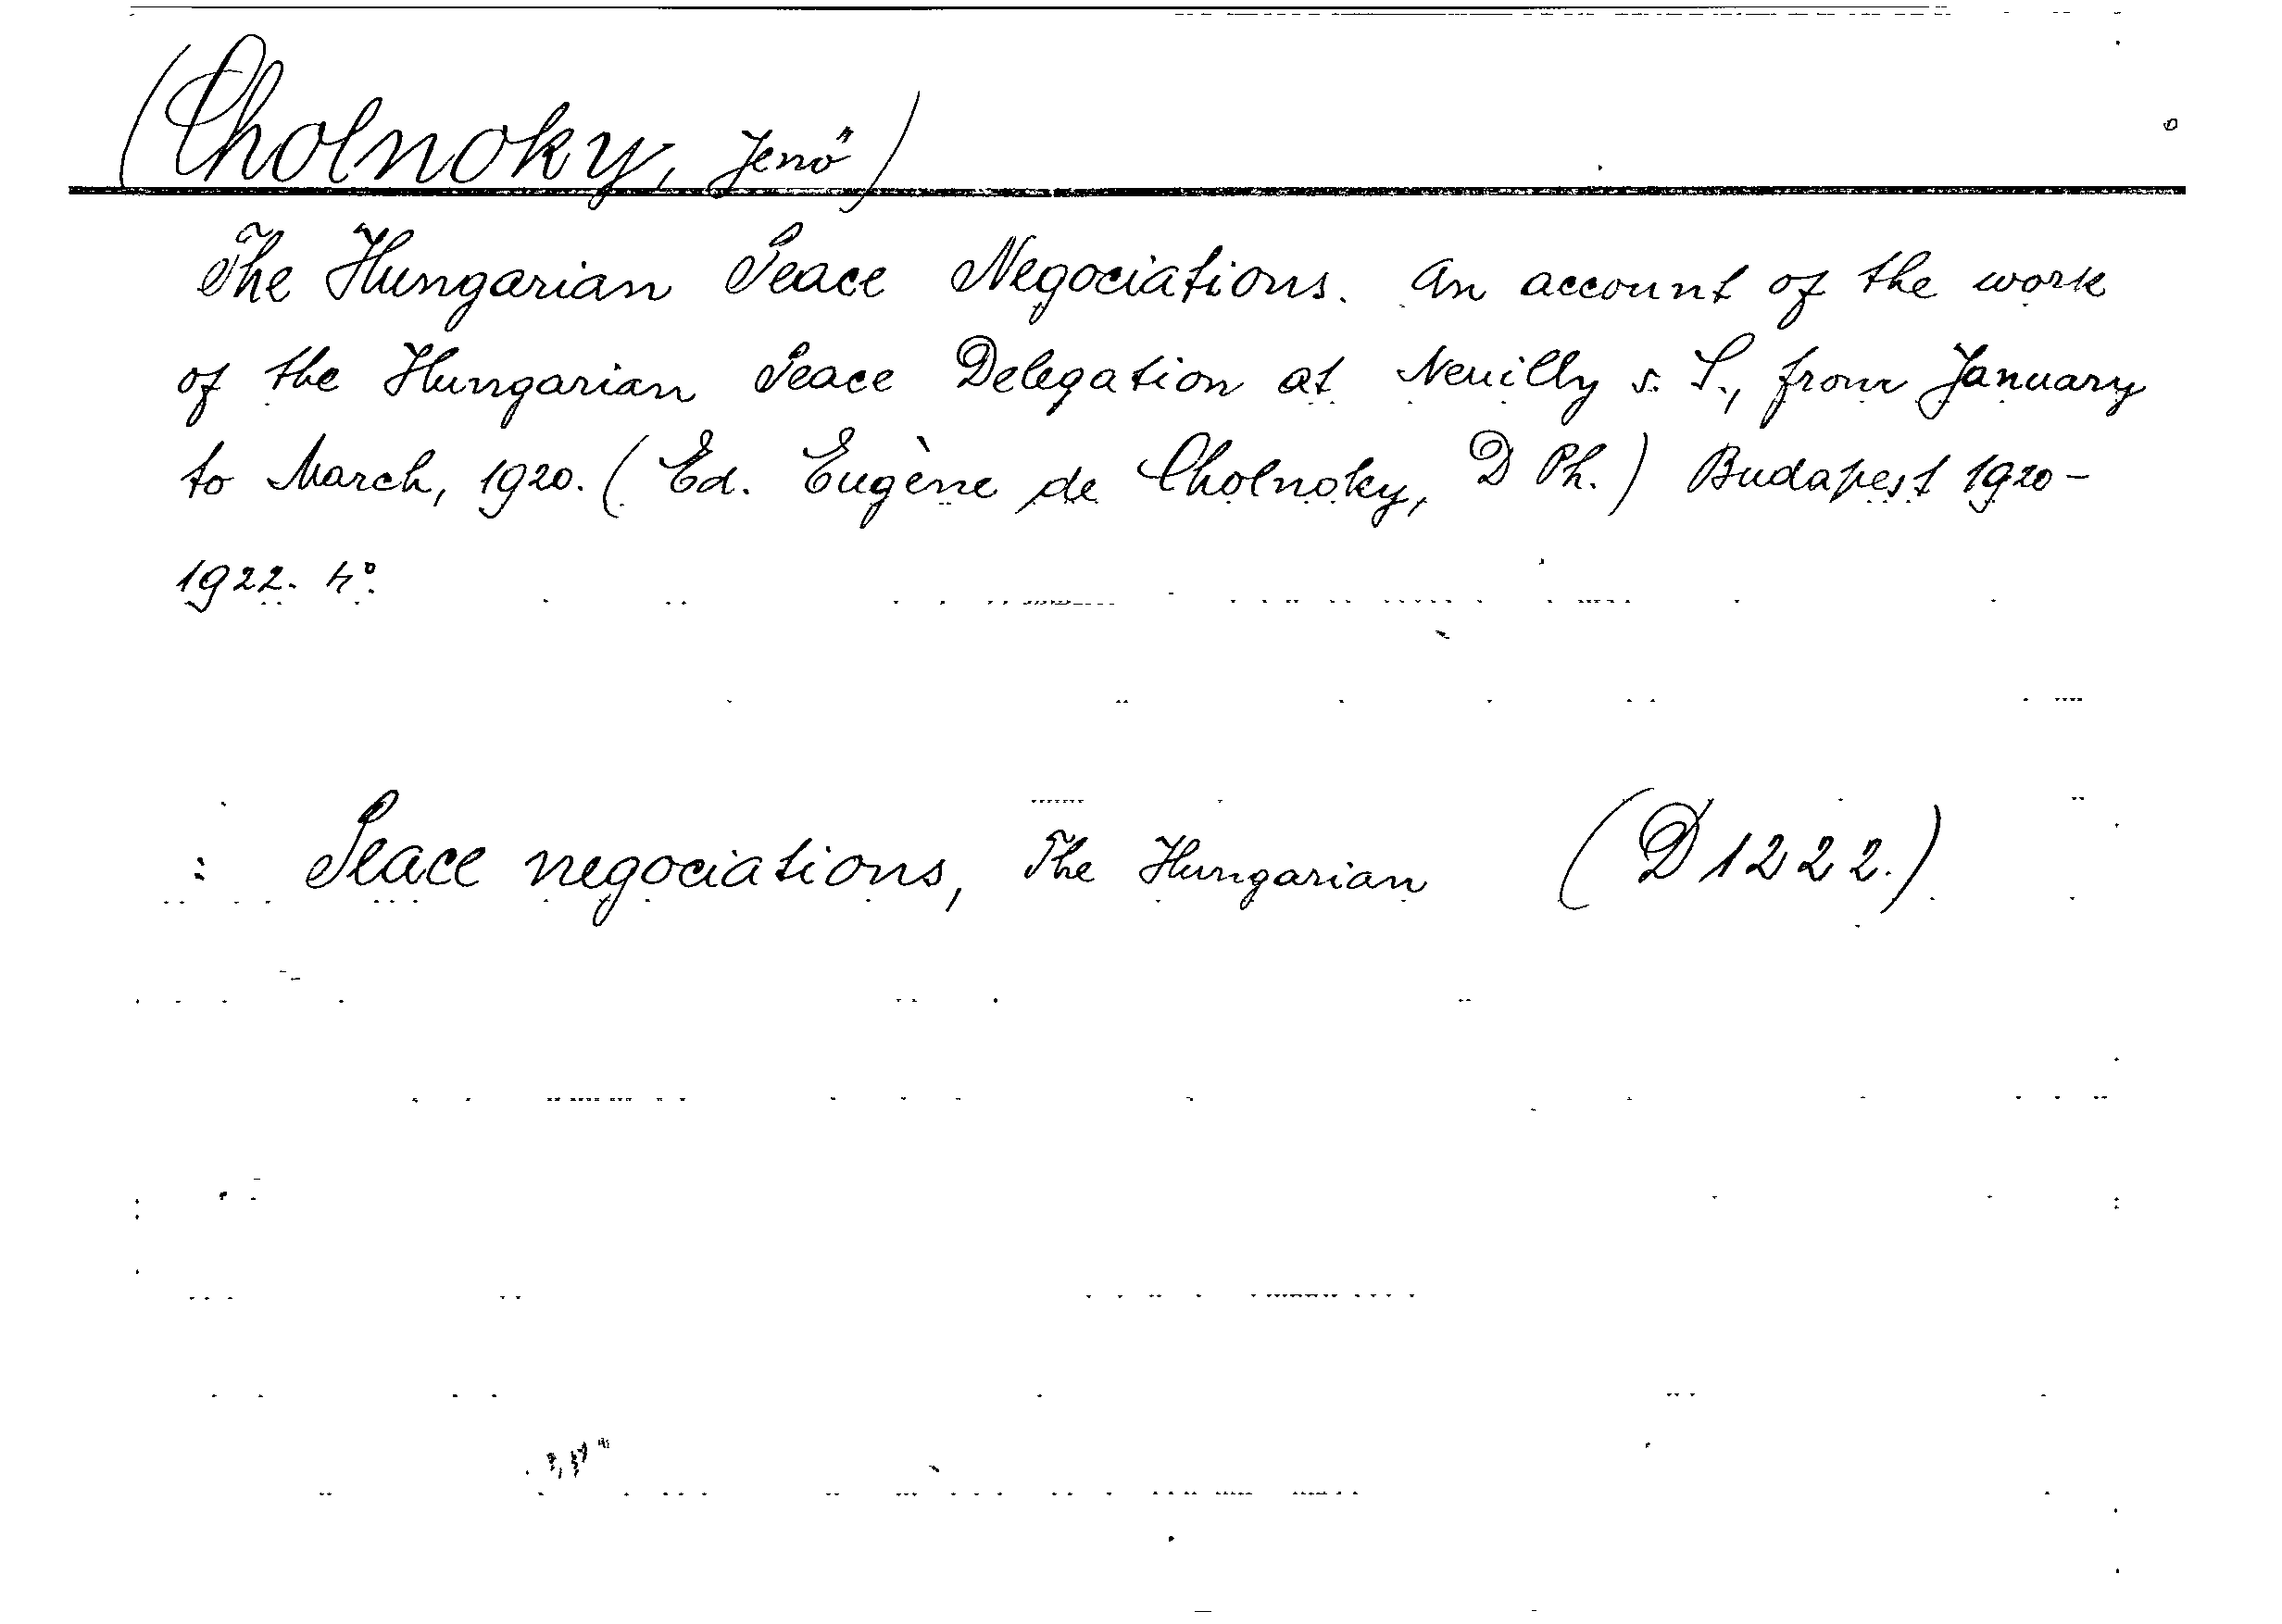 (Cholnoky, Jenő)
The Hungarian Peace Negociations. An account of the work
of the Hungarian Peace Delegation at Neuilly s. S., from January
to March, 1920. (Ed. Eugène de Cholnoky, D Ph.) Budapest 1920-
1922. 4°.
: Peace negociations, The Hungarian (D 1222.)